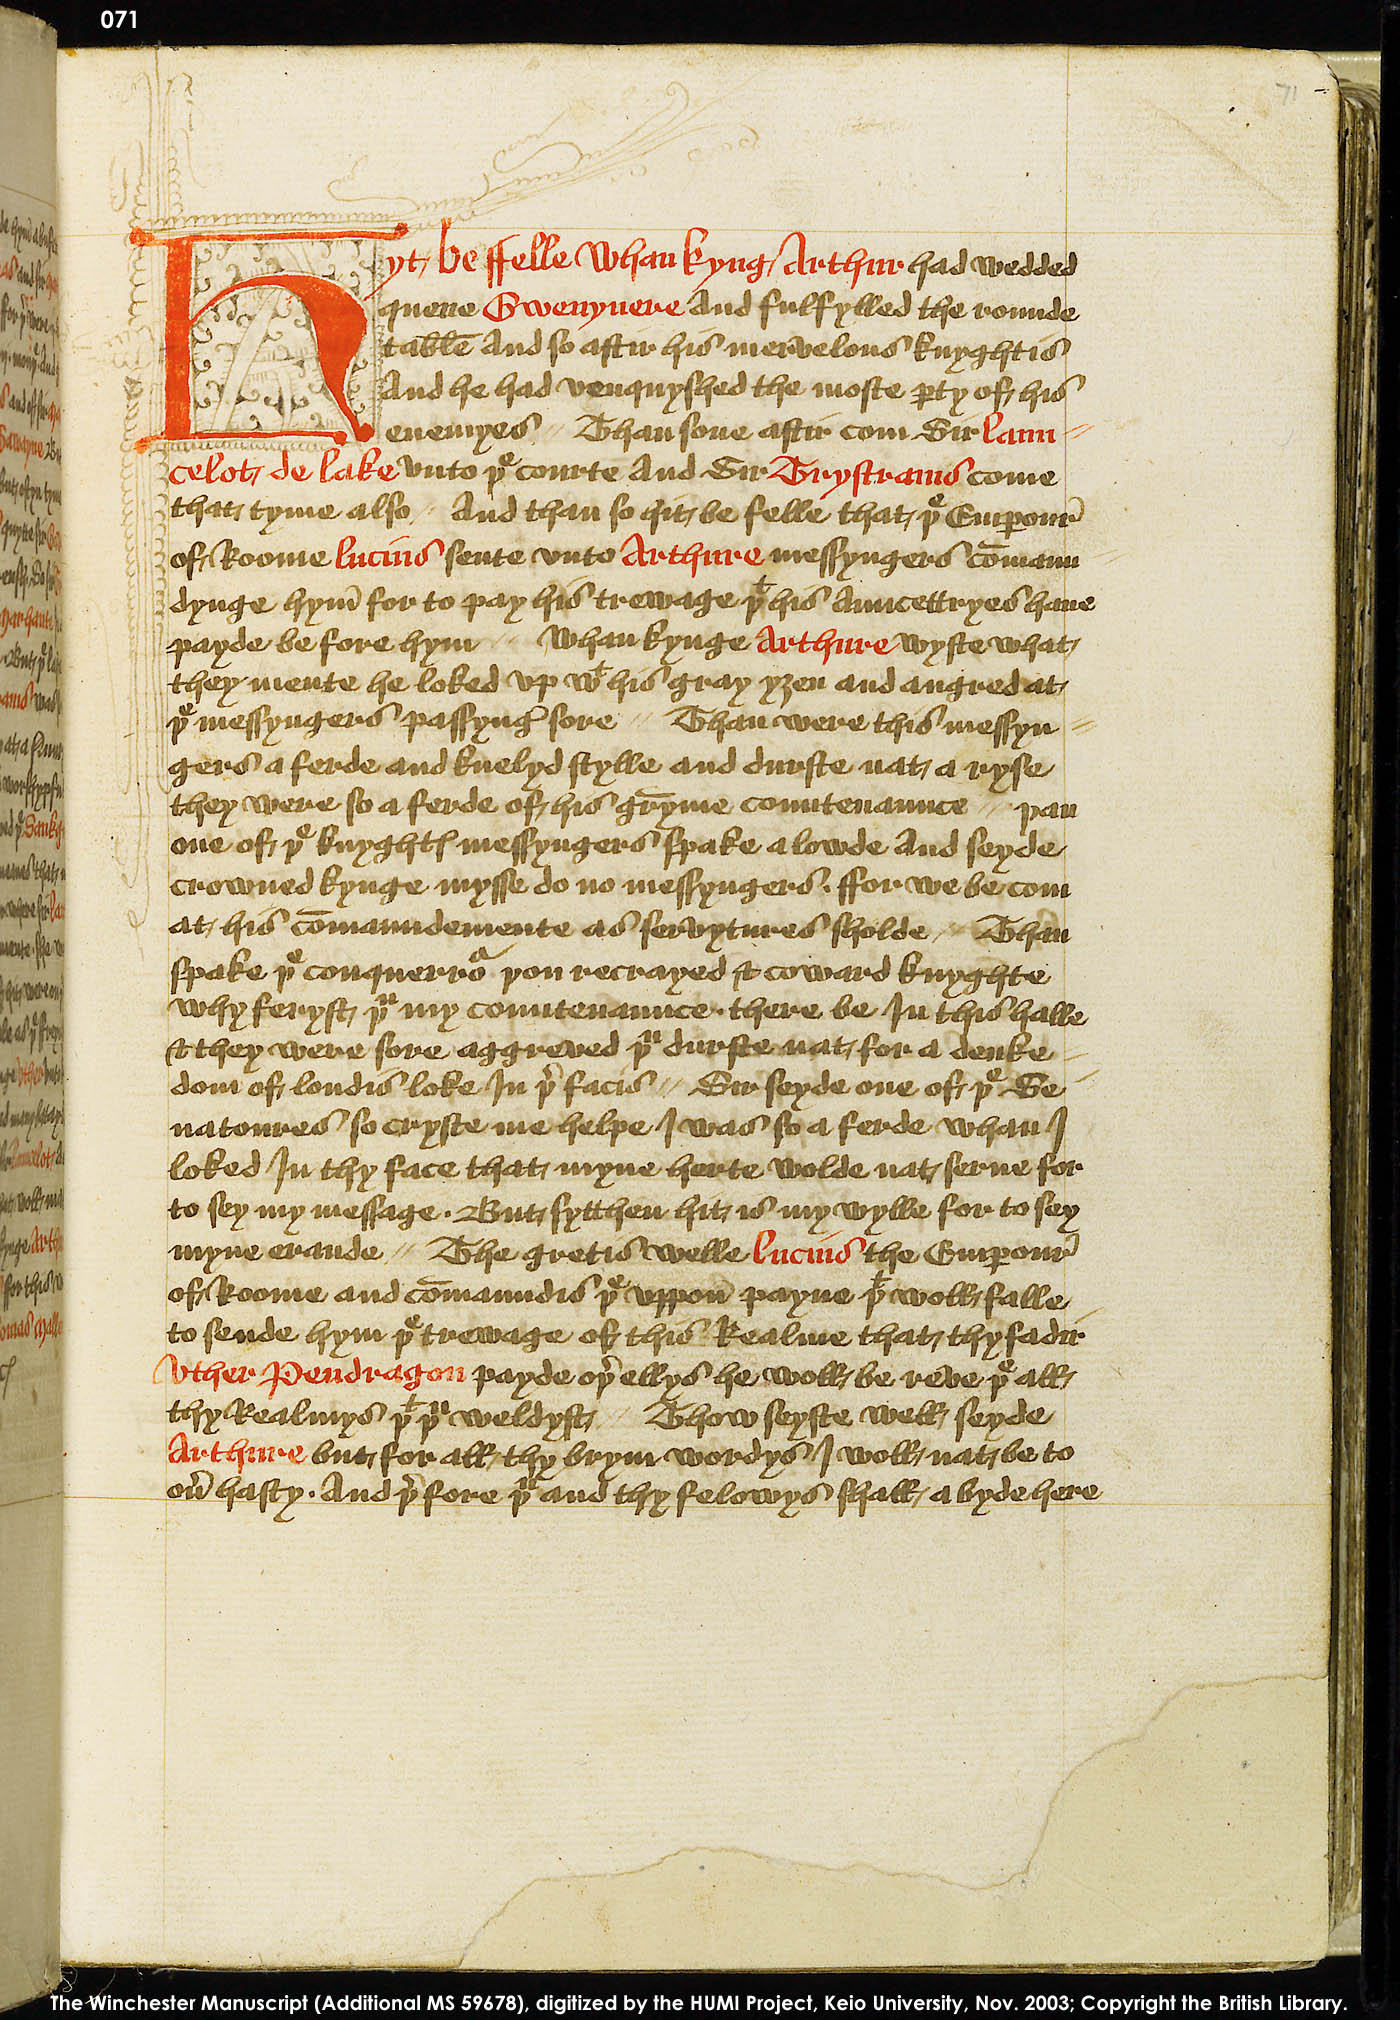 071
71
Hyt be ffelle whan kyng Arthur had wedded
quene Gwenyuere And fulfylled the rounde
table And so aftir his mervelous knyghtis
And he had venquyshed the moste ꝑty of his
enemyes // Than sone aftir com Sir laun-
celot de lake vnto þe courte And Sir Trystrams come
that tyme also // And than so hit be felle that þe Empour̉
of Roome lucius sente vnto Arthure messyngers cōmaun
dynge hym̄ for to pay his trewage þt his Auncettryes haue
payde be fore hym // Whan kynge Arthure wyste what
they mente he loked vp wt his gray yȝen and angred at
þe messyngers passyng̉ sore // Than were this messyn-
gers a ferde and knelyd stylle and durste nat a ryse
they were so a ferde of his gr̄yme countenaunce // þan
one of þe knyghtꝭ messyngers spake a lowde And seyde
crowned kynge mysse do no messyngers . ffor we be com
at his cōmaundemente as servytures sholde // Than
spake þe conquerroʳ þou recrayed & coward knyghte
why feryst þu my countenaunce . there be In this halle
& they were sore aggreved þu durste nat for a deuke
dom of londis loke In þr facis // Sir seyde one of þe Se
natoures so cryste me helpe I was so a ferde whan I
loked In thy face that myne herte wolde nat serue for
to sey my message . But sytthen hit is my wylle for to sey
myne erande // The gretis welle lucius the Empour̉
of Roome and cōmaundis þe vppon̄ payne þt woll falle
to sende hym þe trewage of this Realme that thy fadir
Vther Pendragon payde oþr ellys he woll be reve þe all
thy Realmys þt þu weldyst // Thow seyste well seyde
Arthure but for all thy brym wordys I woll nat be to
oủ hasty . And þrfore þu and thy felowys shall a byde here
The Winchester Manuscript (Additional MS 59678), digitized by the HUMI Project, Keio University, Nov. 2003; Copyright the British Library.